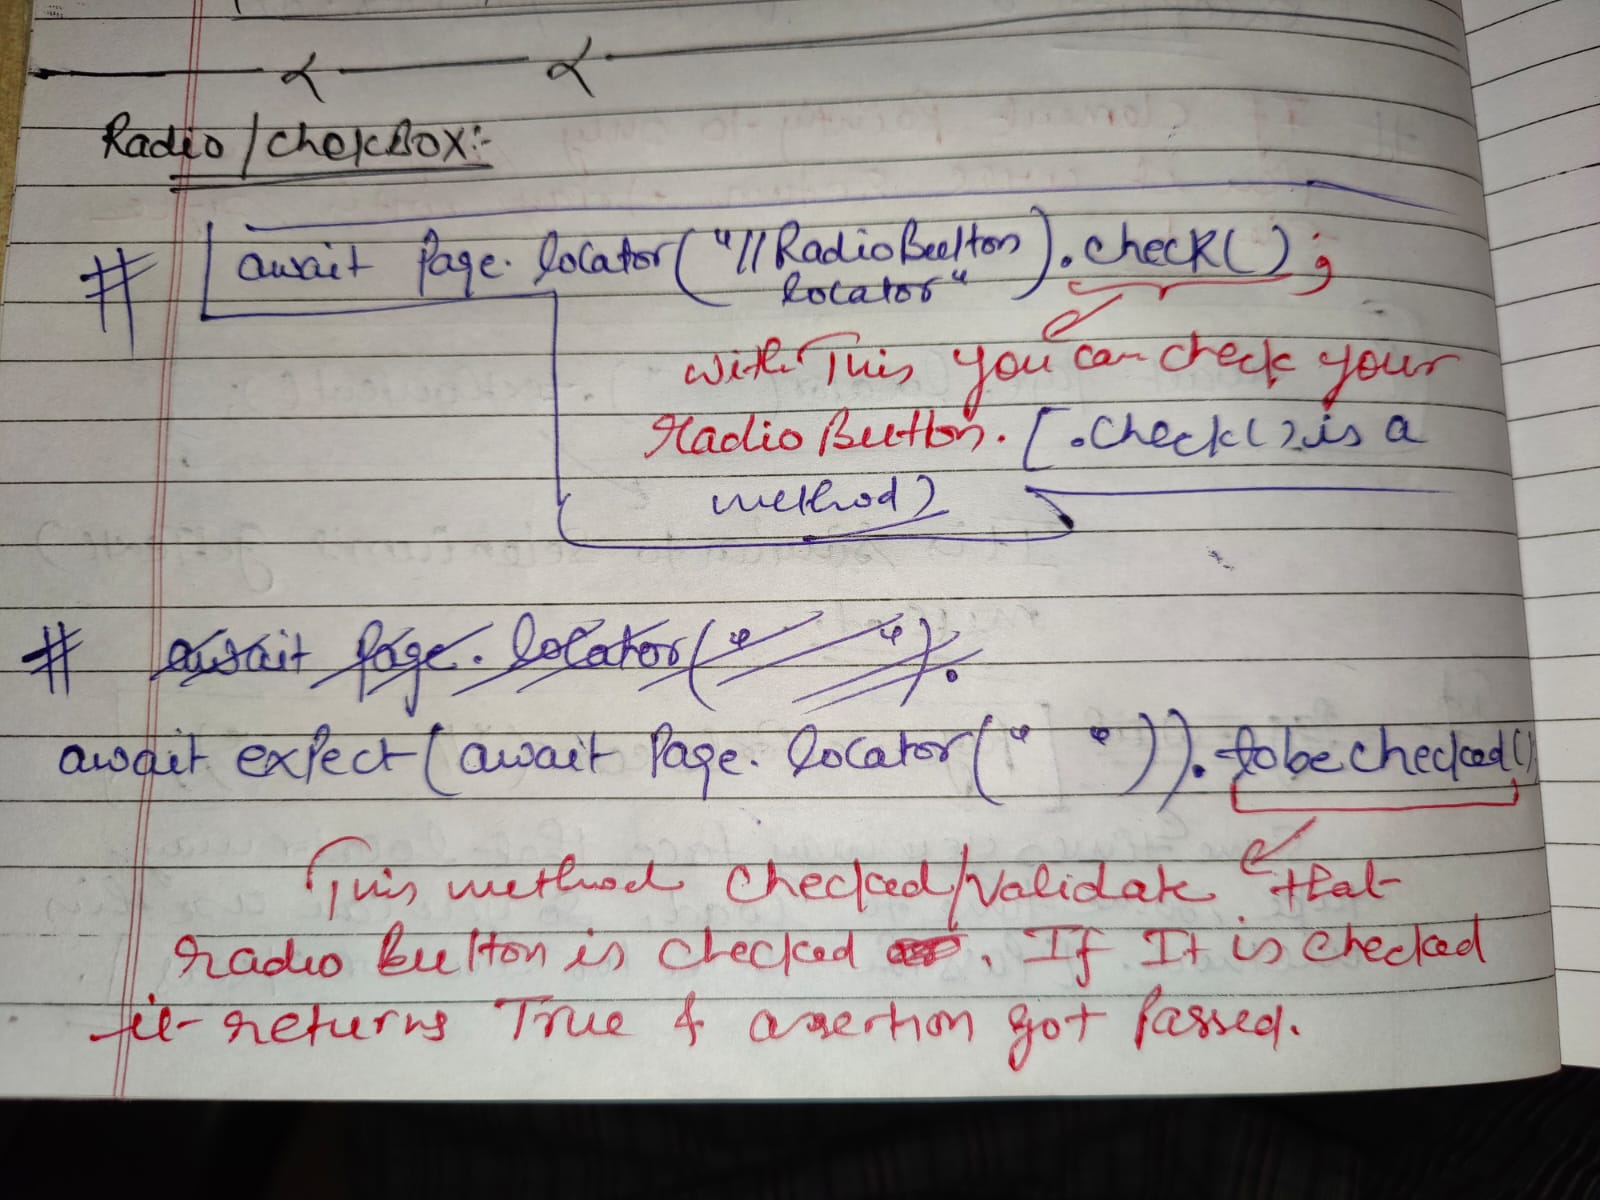 Radio/ChekBox:-
# await Page.locator("//RadioButton locator").check();
with This you can check your
Radio Button. [.check() is a
method]
# await Page.locator(" ").
await expect(await Page.locator(" ")).tobechecked()
This method checked/validate that
radio button is checked. If It is checked
it returns True & assertion got Passed.